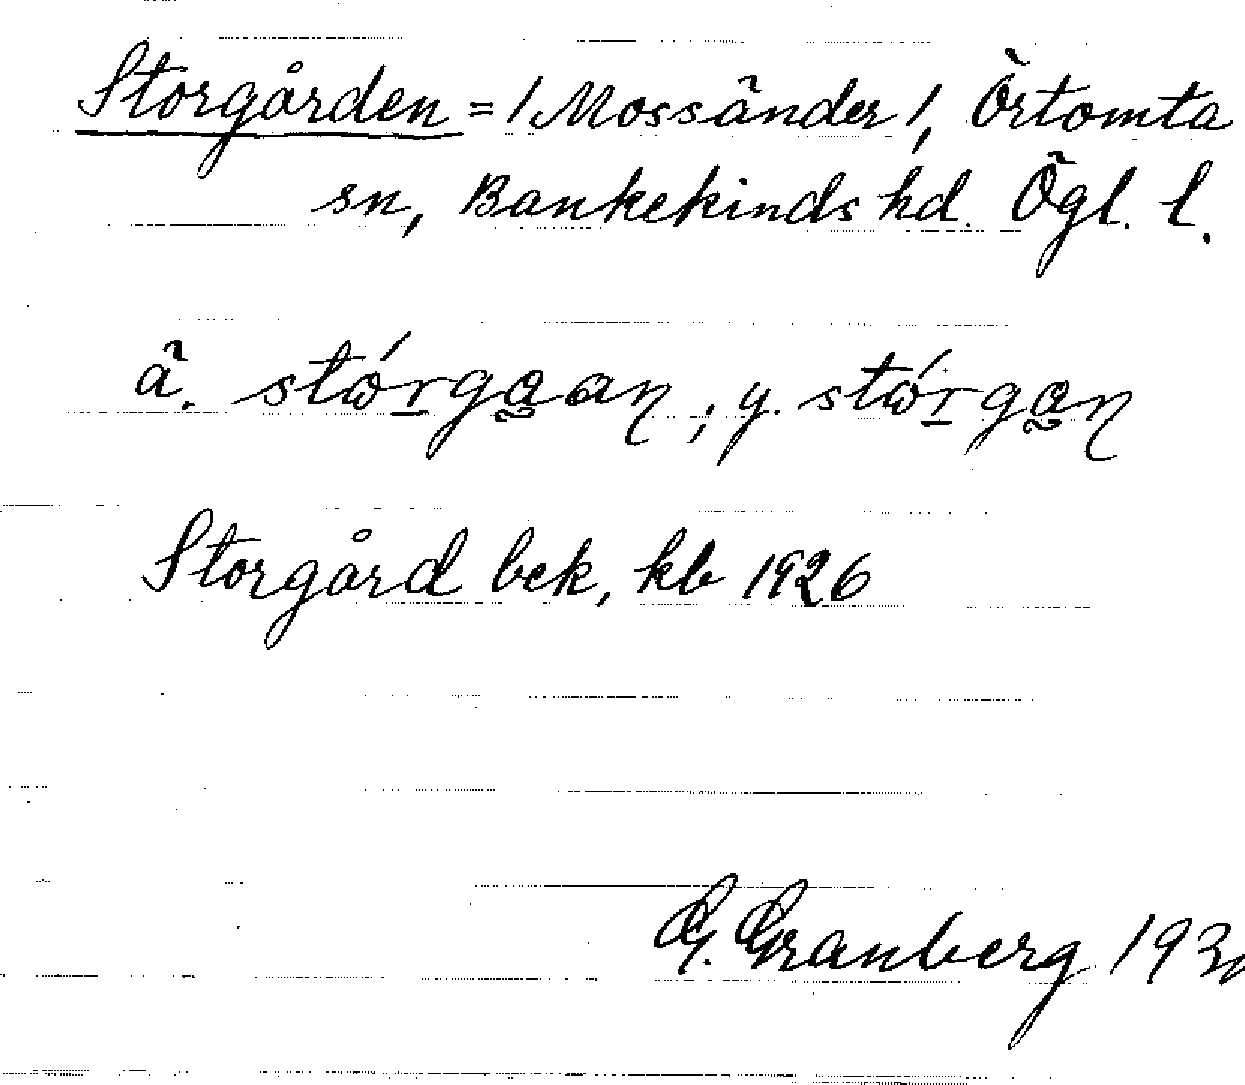 Storgården = /Mossänder/, Örtomta
sn, Bankekinds hd. Ögl. l.
ä. stώrgaan, ; y. stώrgan
Storgård bek, kb 1926
G. Granberg 193